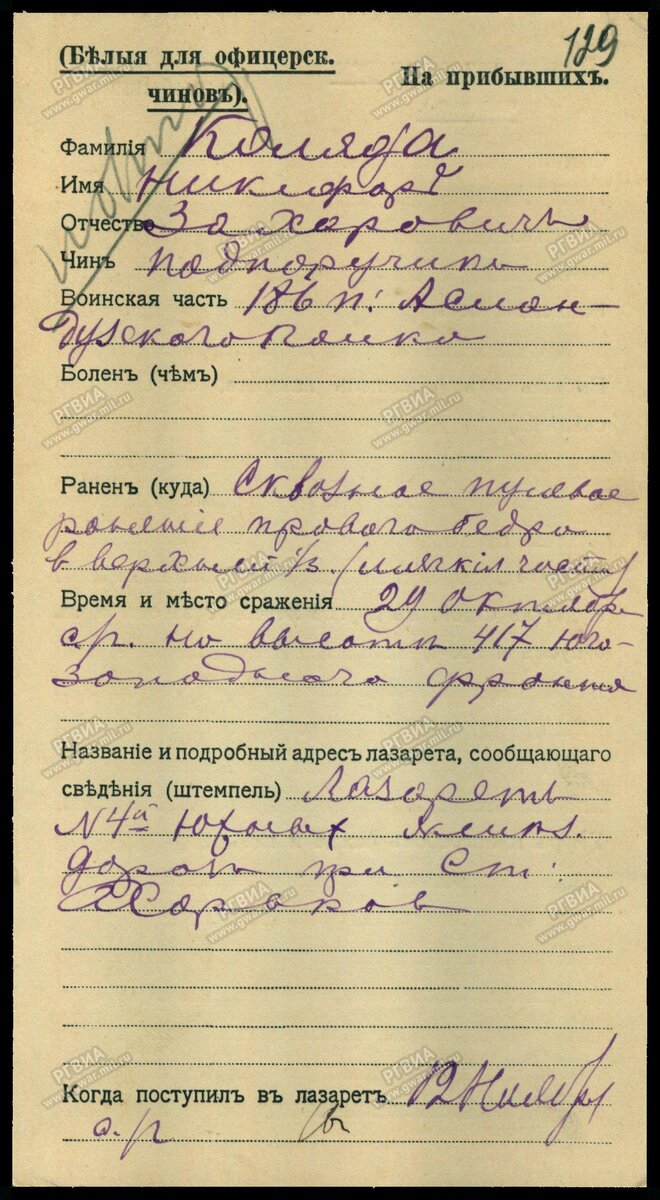 129
(Бѣлыя для офицерск. чиновъ).
На прибывшихъ.
Фамилія Коляда
Имя Никифоръ
Отчество Захаровичъ
Чинъ подпоручикъ
Воинская часть 186 п: Аслан-
дузского полка
Боленъ (чѣмъ)
Раненъ (куда) Сквозное пулевое
ранение правого бедра
в верхней 1/3 (мягкія части)
Время и мѣсто сраженія 29 Октября
с/г. на высоте 417 юго-
западного фронта
Названіе и подробный адресъ лазарета, сообщающаго
свѣдѣнія (штемпель) Лазаретъ
N 4й Южных Желез.
дорогъ при Ст:
Харьков
Когда поступилъ въ лазаретъ 12 Ноября
с.г
РГВИА
www.gwar.mil.ru